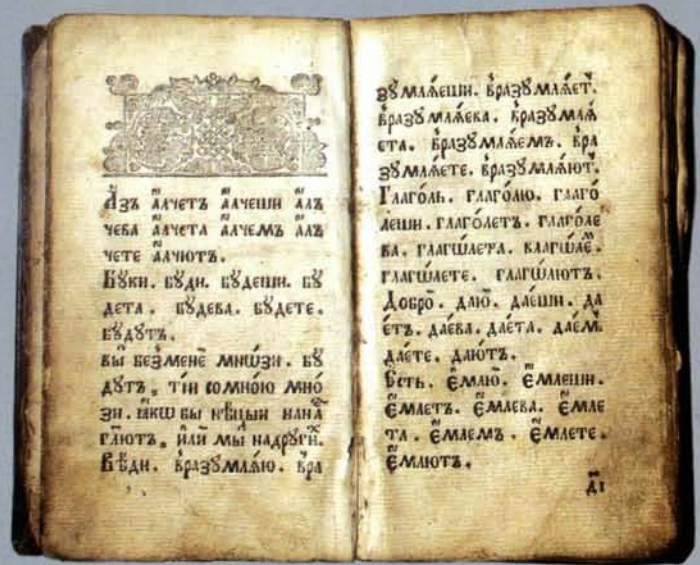 А҆зъ а҆лчетъ а҆лчеши а҆лъ
чева а҆лчета а҆лчемъ а҆лъ
чете а҆лчютъ.
Бꙋки. бꙋди. бꙋдеши. бꙋ
дета. бꙋдева. бꙋдете.
бꙋдꙋтъ.
вы̀ без̾менѐ мнѡ́зи. бꙋ
дꙋтъ, ті́и со мно́ю мно́
зи. ꙗ҆́кѡ бы нѣ́цыи на на̀
глютъ, и҆лѝ мы̀ на дрꙋги́хъ
Вѣди. вразꙋмлѧ́ю. вра
зꙋмлѧ́еши. вразꙋмлѧ́етъ.
вразꙋмлѧ́ева. вразꙋмлѧ́
ета. вразꙋмлѧ́емъ. вра
зꙋмлѧ́ете. вразꙋмлѧ́ютъ.
Глаго́ль. глаго́лю. глаго́
леши. глаго́летъ. глаго́ле
ва. глагѡ́лета. калгѡ́леⷨ.
глагѡ́лете. глагѡ́лютъ.
Добро̀. даю̀. дае́ши. да
е́тъ. дае́ва. дае́та. дае́мъ
дае́те. даю́тъ.
Є҆сть. є҆́млю. є҆́млеши.
є҆́млетъ. є҆́млева. є҆́мле
та. є҆́млемъ. є҆́млете.
є҆́млютъ.
д҃і